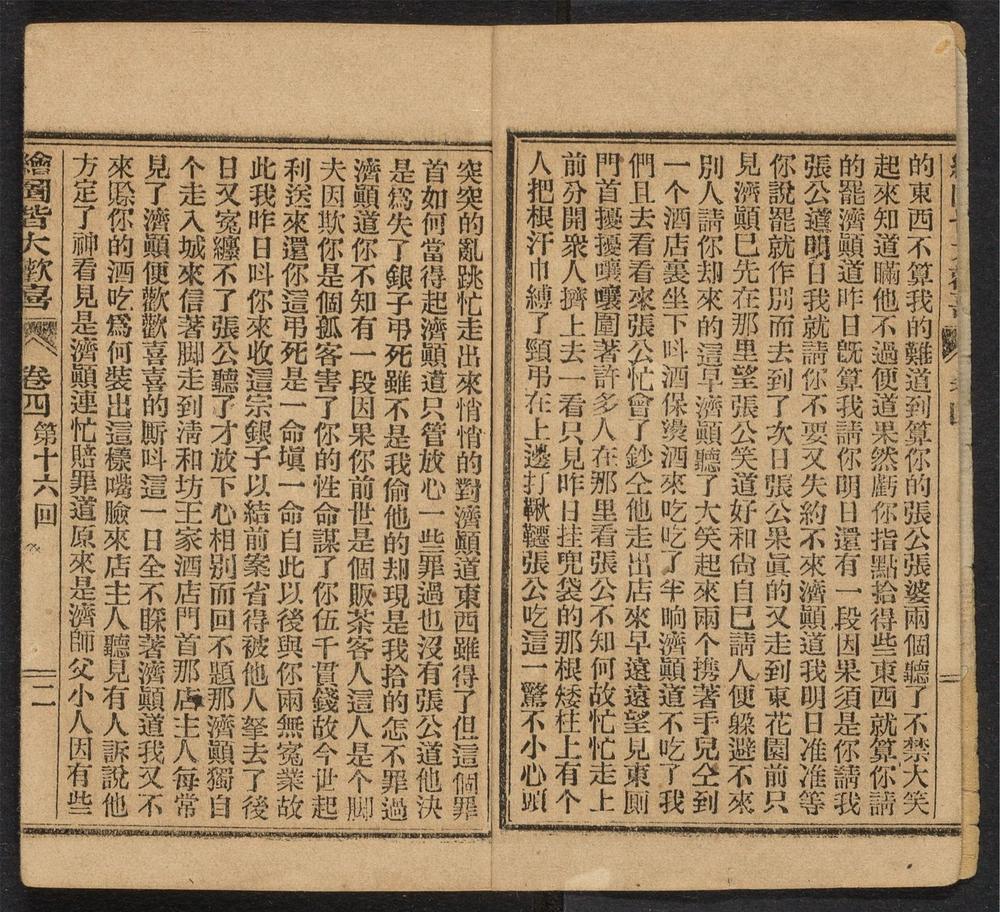 的東西不算我的難道到算你的張公張婆兩個聽了不禁大笑
起來知道瞞他不過便道果然虧你指點拾得些東西就算你請
的罷濟顚道昨日旣算我請你明日還有一段因果須是你請我
張公道明日我就請你不要又失約不來濟顚道我明日准准等
你說罷就作別而去到了次日張公果眞的又走到東花園前只
見濟顚已先在那里望張公笑道好和尙自已請人便躱避不來
別人請你却來的這早濟顚聽了大笑起來兩个携著手兒仝到
一个酒店裏坐下呌酒保燙酒來吃吃了半晌濟顚道不吃了我
們且去看看來張公忙會了鈔仝他走出店來早遠遠望見東厠
門首擾擾嚷嚷圍著許多人在那里看張公不知何故忙忙走上
前分開衆人擠上去一看只見昨日挂兜袋的那根矮柱上有个
人把根汗巾縛了頸弔在上邊打鞦韆張公吃這一驚不小心頭
突突的亂跳忙走出來悄悄的對濟顚道東西雖得了但這個罪
首如何當得起濟顚道只管放心一些罪過也沒有張公道他決
是爲失了銀子弔死雖不是我偷他的却現是我拾的怎不罪過
濟顚道你不知有一段因果你前世是個販茶客人這人是个脚
夫因欺你是個孤客害了你的性命謀了你伍千貫錢故今世起
利送來還你這弔死是一命塡一命自此以後與你兩無寃業故
此我昨日呌你來收這宗銀子以結前案省得被他人拏去了後
日又寃纏不了張公聽了才放下心相別而回不題那濟顚獨自
个走入城來信著脚走到淸和坊王家酒店門首那店主人每常
見了濟顚便歡歡喜喜的厮呌這一日全不睬著濟顚道我又不
來賒你的酒吃爲何裝出這樣嘴臉來店主人聽見有人訴說他
方定了神看見是濟顚連忙賠罪道原來是濟師父小人因有些
繪圖皆大歡喜 卷四 第十六回 二